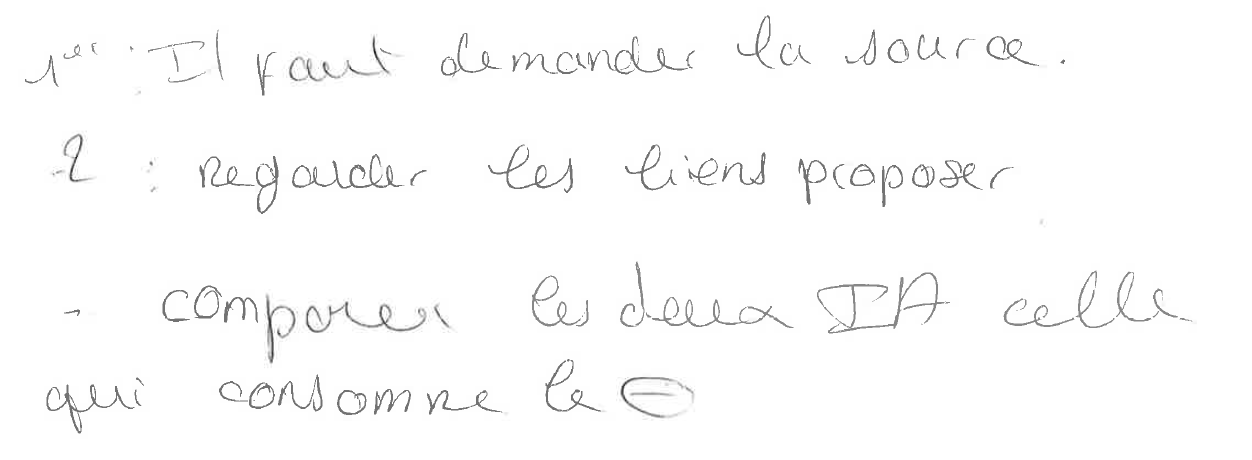 1er : Il faut demander la source.
2 : Regarder les liens proposer
- comparer les deux IA celle
qui consomne le ⊖